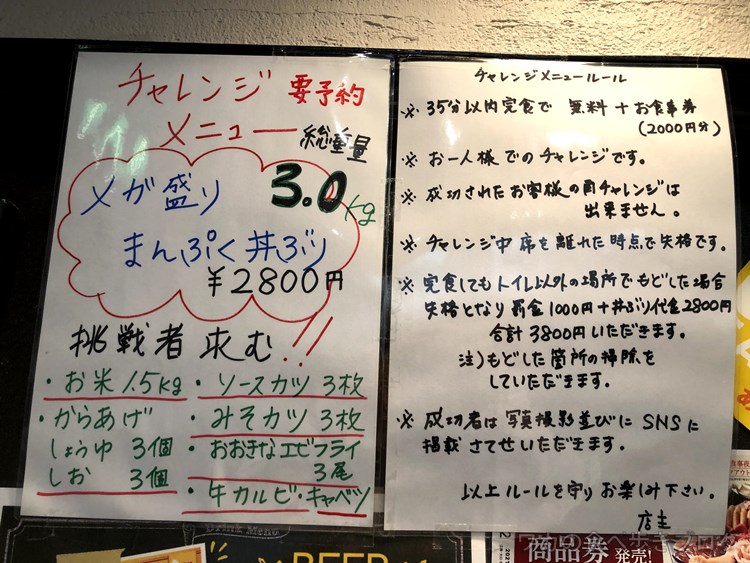 チャレンジ 要予約
メニュー 総重量
メガ盛り 3.0kg
まんぷく丼ぶり
¥2800円
挑戦者求む!!
・お米1.5kg
・からあげ
しょうゆ 3個
しお 3個
・ソースカツ 3枚
・みそカツ 3枚
・おおきなエビフライ
3尾
・牛カルビ・キャベツ
チャレンジメニュールール
※ 35分以内完食で 無料+お食事券
(2000円分)
※ お一人様でのチャレンジです。
※ 成功されたお客様の再チャレンジは
出来ません。
※ チャレンジ中 席を離れた時点で失格です。
※ 完食してもトイレ以外の場所でもどした場合
失格となり罰金1000円+丼ぶり代金2800円
合計3800円いただきます。
注)もどした箇所の掃除を
していただきます。
※ 成功者は写真撮影並びにSNSに
掲載させていただきます。
以上ルールを守りお楽しみ下さい。
店主
Drink Menu
BEER
商品券 発売!